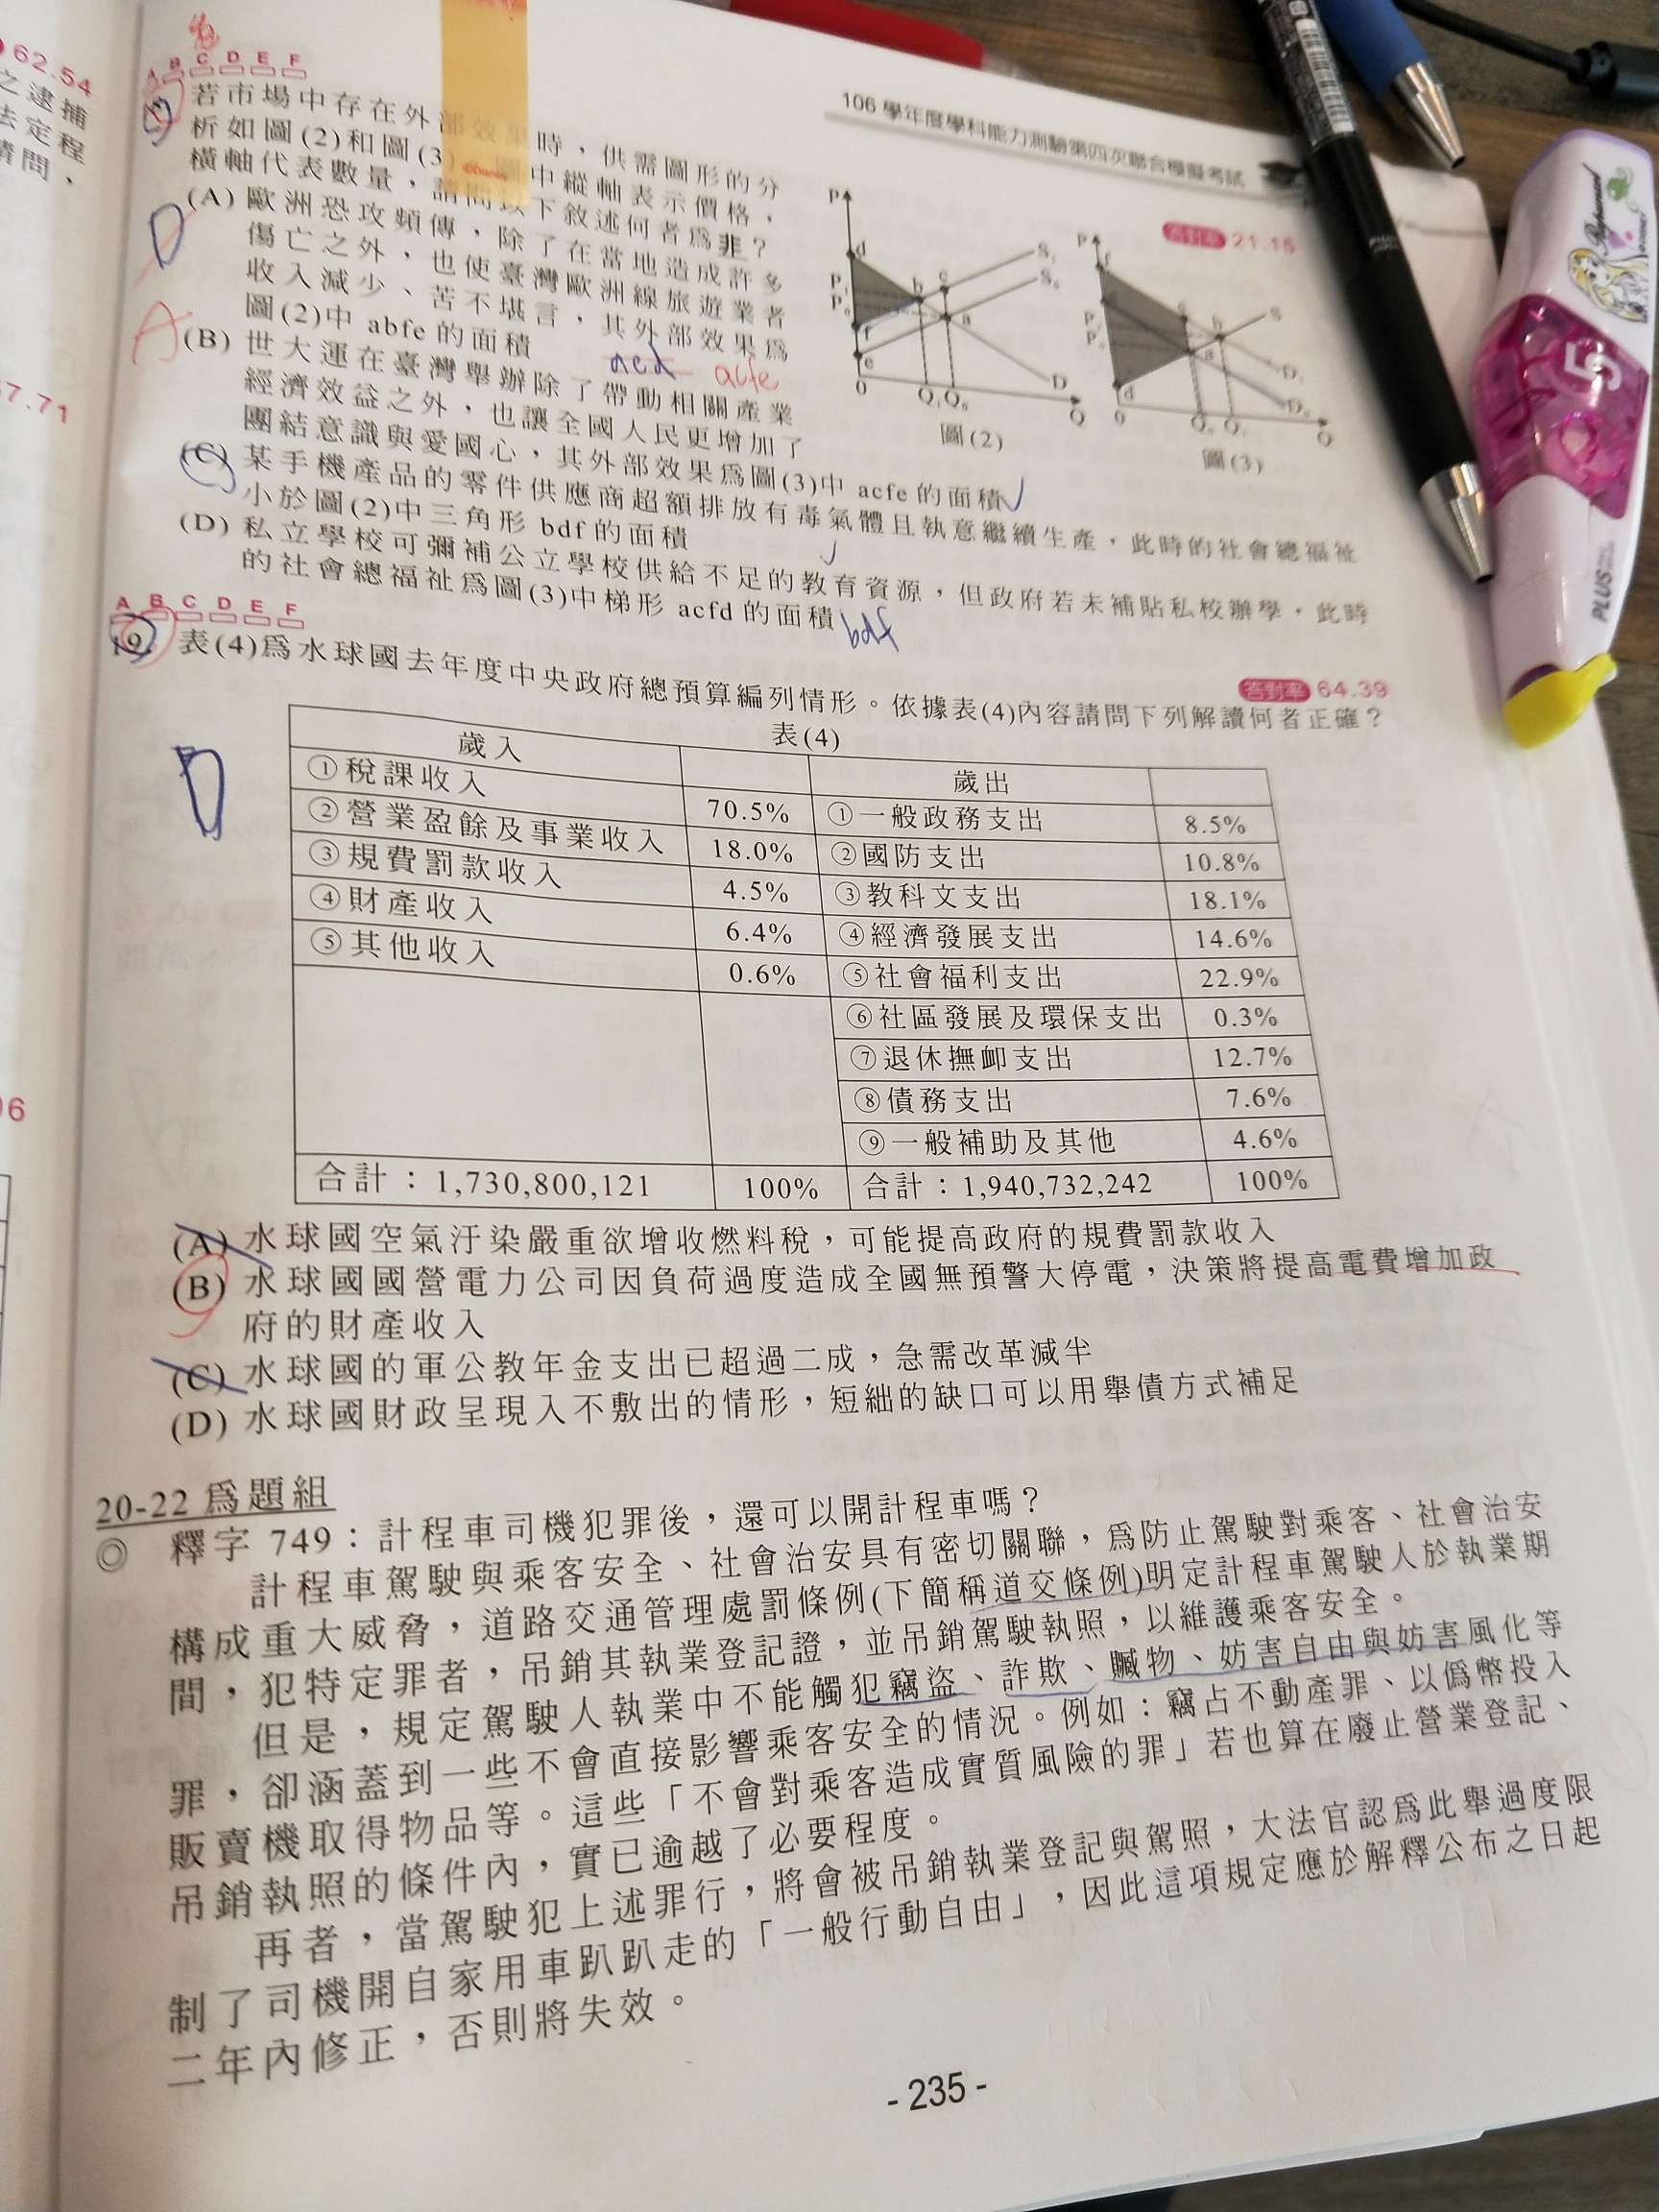 62.54
之逮捕
法定程
請問,
57.71
06
106 學年度學科能力測驗第四次聯合模擬考試
A B C D E F
若市場中存在外部效果時,供需圖形的分
析如圖(2)和圖(3),圖中縱軸表示價格,
橫軸代表數量,請問以下敘述何者爲非?
答對率 21.15
(A) 歐洲恐攻頻傳,除了在當地造成許多
傷亡之外,也使臺灣歐洲線旅遊業者
收入減少、苦不堪言,其外部效果爲
圖(2)中 abfe 的面積
acd acfe
D
A
(B) 世大運在臺灣舉辦除了帶動相關產業
經濟效益之外,也讓全國人民更增加了
團結意識與愛國心,其外部效果爲圖(3)中 acfe 的面積
(C) 某手機產品的零件供應商超額排放有毒氣體且執意繼續生產,此時的社會總福祉
小於圖(2)中三角形 bdf 的面積
(D) 私立學校可彌補公立學校供給不足的教育資源,但政府若未補貼私校辦學,此時
的社會總福祉爲圖(3)中梯形 acfd 的面積 bdf
P
d
S₁
S₀
P₁
P₀
b
c
a
f
e
0
Q₁ Q₀
D
Q
圖(2)
P
f
S
c
b
a
d
0
D₁
D₀
Q₀ Q₁
Q
圖(3)
A B C D E F
19. 表(4)爲水球國去年度中央政府總預算編列情形。依據表(4)內容請問下列解讀何者正確?
答對率 64.39
D
表(4)
歲入 歲出
①稅課收入 70.5% ①一般政務支出 8.5%
②營業盈餘及事業收入 18.0% ②國防支出 10.8%
③規費罰款收入 4.5% ③教科文支出 18.1%
④財產收入 6.4% ④經濟發展支出 14.6%
⑤其他收入 0.6% ⑤社會福利支出 22.9%
⑥社區發展及環保支出 0.3%
⑦退休撫卹支出 12.7%
⑧債務支出 7.6%
⑨一般補助及其他 4.6%
合計:1,730,800,121 100% 合計:1,940,732,242 100%
(A) 水球國空氣汙染嚴重欲增收燃料稅,可能提高政府的規費罰款收入
(B) 水球國國營電力公司因負荷過度造成全國無預警大停電,決策將提高電費增加政
府的財產收入
(C) 水球國的軍公教年金支出已超過二成,急需改革減半
(D) 水球國財政呈現入不敷出的情形,短絀的缺口可以用舉債方式補足
20-22 爲題組
◎ 釋字 749:計程車司機犯罪後,還可以開計程車嗎?
計程車駕駛與乘客安全、社會治安具有密切關聯,爲防止駕駛對乘客、社會治安
構成重大威脅,道路交通管理處罰條例(下簡稱道交條例)明定計程車駕駛人於執業期
間,犯特定罪者,吊銷其執業登記證,並吊銷駕駛執照,以維護乘客安全。
但是,規定駕駛人執業中不能觸犯竊盜、詐欺、贓物、妨害自由與妨害風化等
罪,卻涵蓋到一些不會直接影響乘客安全的情況。例如:竊占不動產罪、以僞幣投入
販賣機取得物品等。這些「不會對乘客造成實質風險的罪」若也算在廢止營業登記、
吊銷執照的條件內,實已逾越了必要程度。
再者,當駕駛犯上述罪行,將會被吊銷執業登記與駕照,大法官認爲此舉過度限
制了司機開自家用車趴趴走的「一般行動自由」,因此這項規定應於解釋公布之日起
二年內修正,否則將失效。
- 235 -
PLUS